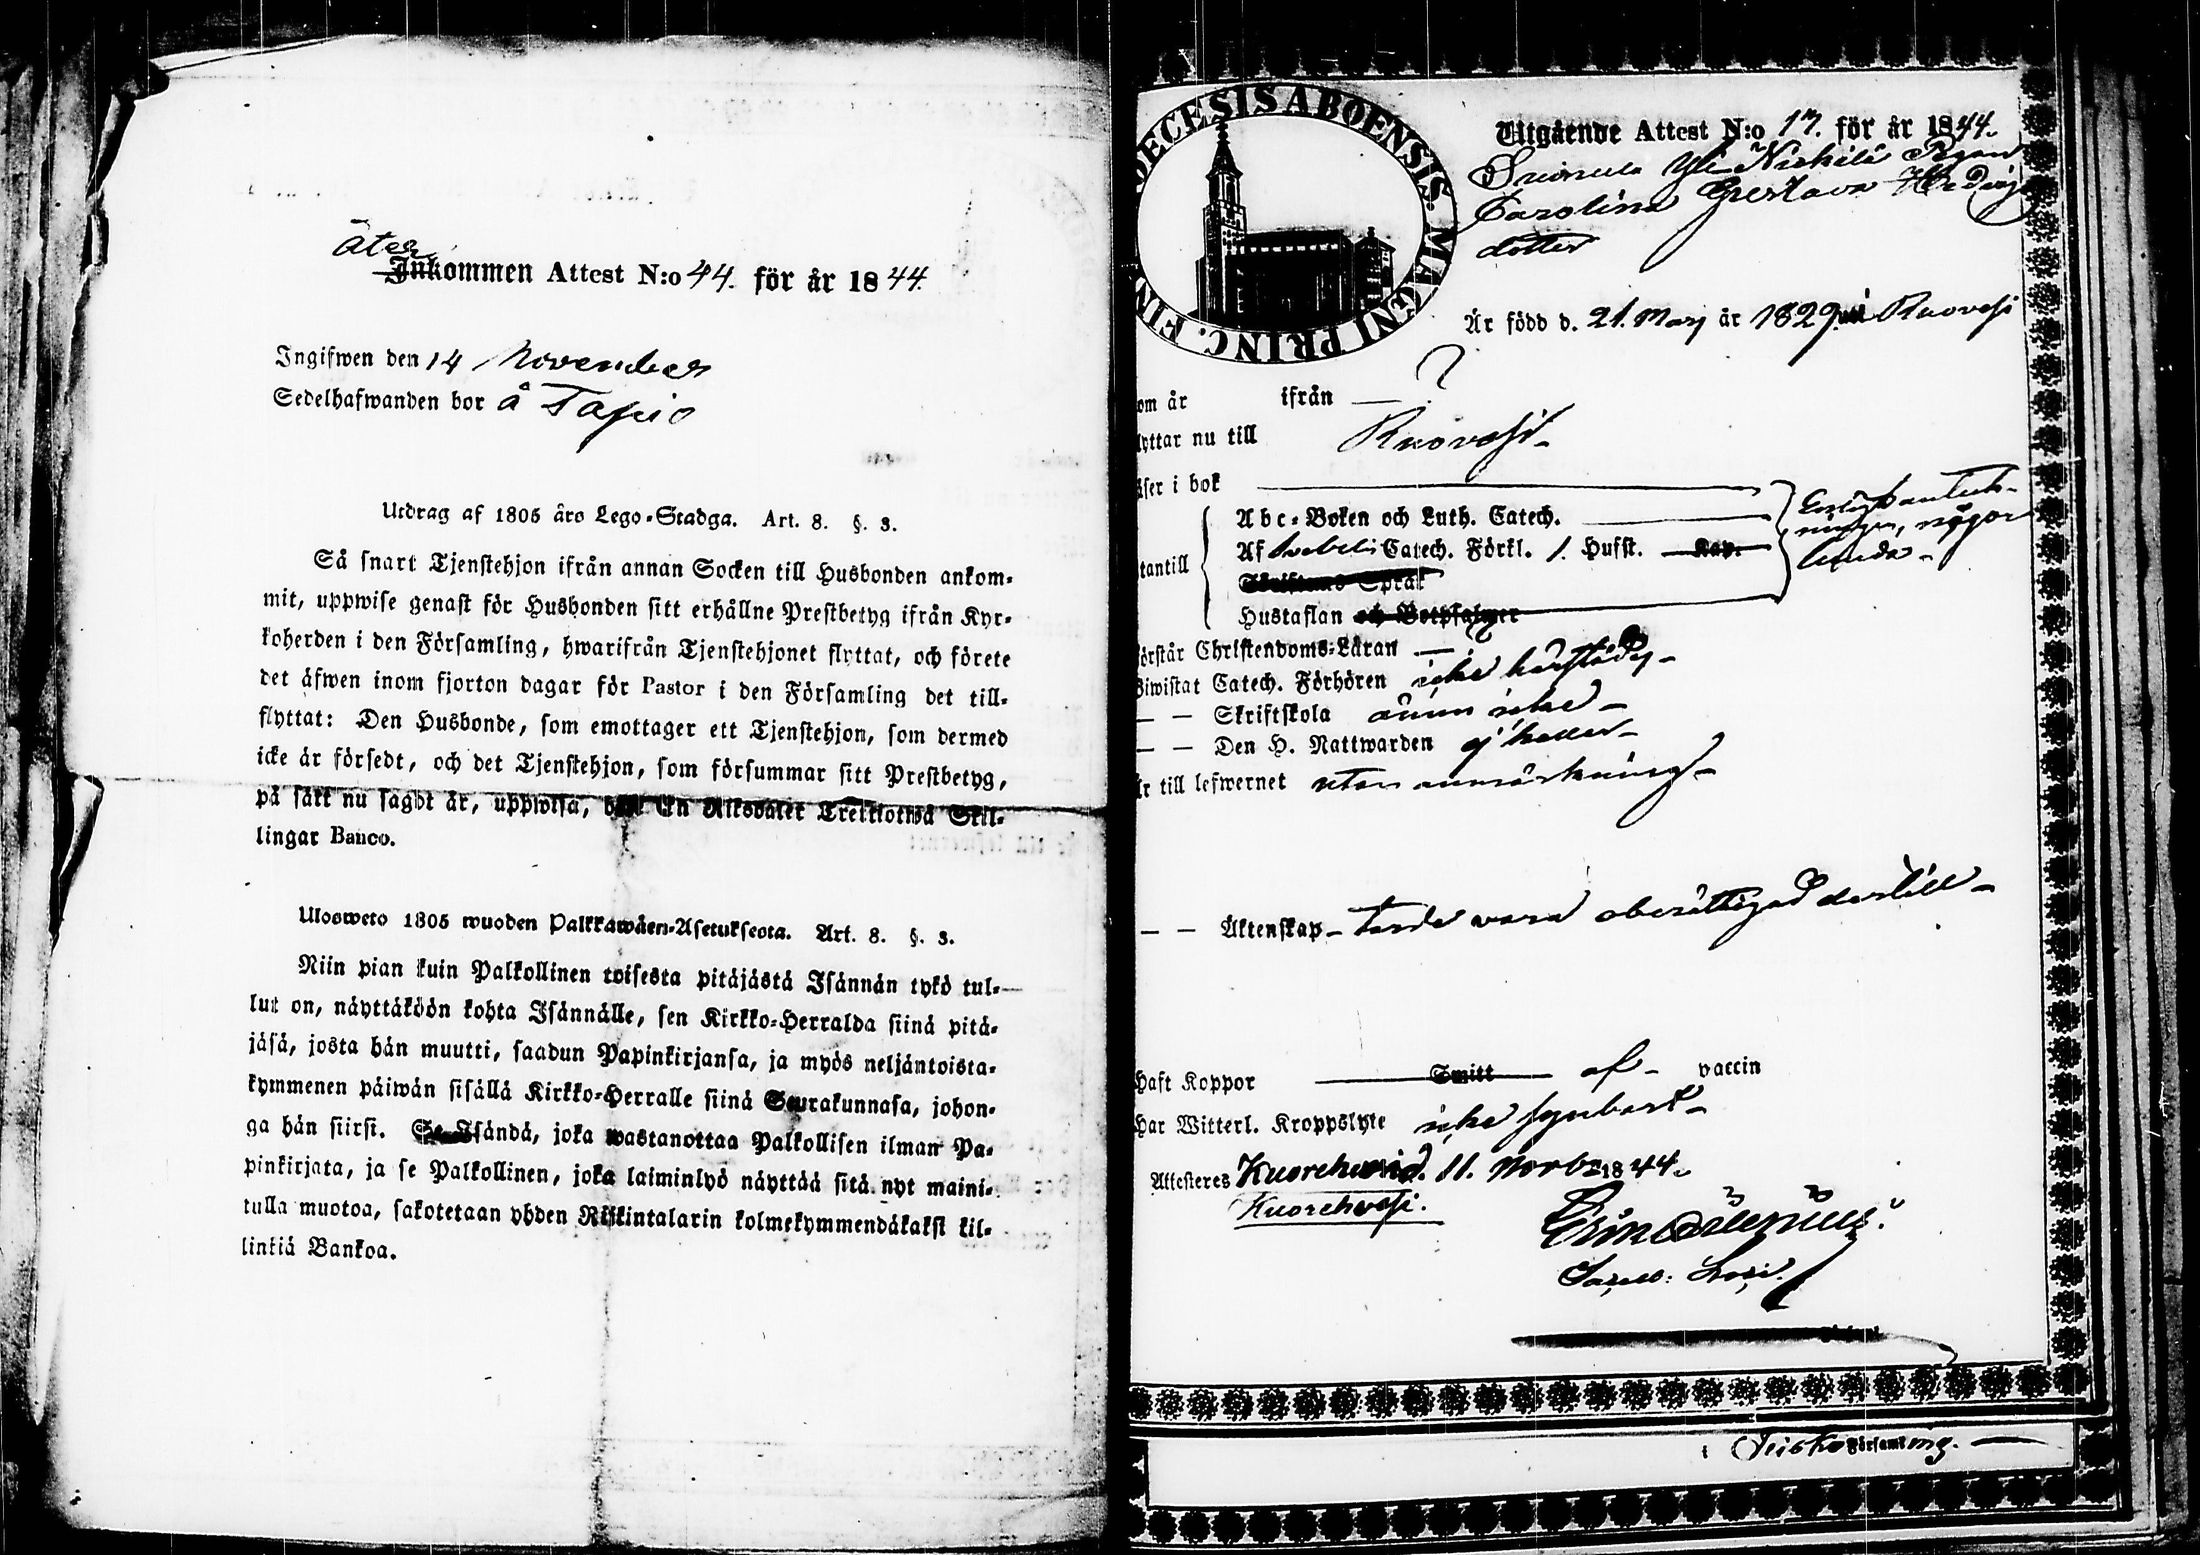 åter
Inkommen Attest N:o 44. för år 1844.
Ingifwen den 14 November
Sedelhafwanden bor å Tapio
Utdrag af 1805 års Lego-Stadga. Art. 8. §. 3.
Så snart Tjenstehjon ifrån annan Socken till Husbonden ankom-
mit, uppwise genast för Husbonden sitt erhållne Prestbetyg ifrån Kyr-
koherden i den Församling, hwarifrån Tjenstehjonet flyttat, och förete
det äfwen inom fjorton dagar för Pastor i den Församling det till-
flyttat: Den Husbonde, som emottager ett Tjenstehjon, som dermed
icke är försedt, och det Tjenstehjon, som försummar sitt Prestbetyg,
på sätt nu sagdt är, uppwisa, En Riksdaler Trettiotwå Skil-
lingar Banco.
Ulosweto 1805 wuoden Palkkawäen-Asetuksesta. Art. 8. §. 3.
Niin pian kuin Palkollinen toisesta pitäjästä Isännän tykö tul-
lut on, näyttäköön kohta Isännälle, sen Kirkko-Herralda siinä pitä-
jäsä, josta hän muutti, saadun Papinkirjansa, ja myös neljäntoista-
kymmenen päiwän sisällä Kirkko-Herralle siinä Seurakunnasa, johon-
ga hän siirsi. Se Isändä, joka wastanottaa Palkollisen ilman Pa-
pinkirjata, ja se Palkollinen, joka laiminlyö näyttää sitä nyt maini-
tulla muotoa, sakotetaan yhden Riikintalarin kolmekymmendäkaksi kil-
linkiä Bankoa.
DECESIS ABOENSIS. MAGNI PRINC. FIN
Utgående Attest N:o 17. för år 1844.
Yli
Carolina Gustava Hedvig
dotter
Är född d. 21. Marj år 1829 i Ruovesi
om år ifrån — ?
lyttar nu till Ruovesi
äser i bok
tantill
Abc-Boken och Luth. Catech.
Af Svebelii Catech. Förkl. 1. Husst. Kap.
Skriftens Språk
Hustaflan och Botpsalmer
någor
lunda
örstår Christendoms-Läran —
Biwistat Catech. Förhören icke härstädes
— — Skriftskola ännu icke
— — Den H. Nattwarden ej heller
r till lefwernet utan anmärkning
— — Äktenskap torde vara oberättigad dertill
Haft Koppor Smitt af vaccin
Har Witterl. Kroppslyte icke synbart
Attesteres 11. Novbr 1844.
Kuorehvesi.
i Teisko Församling.